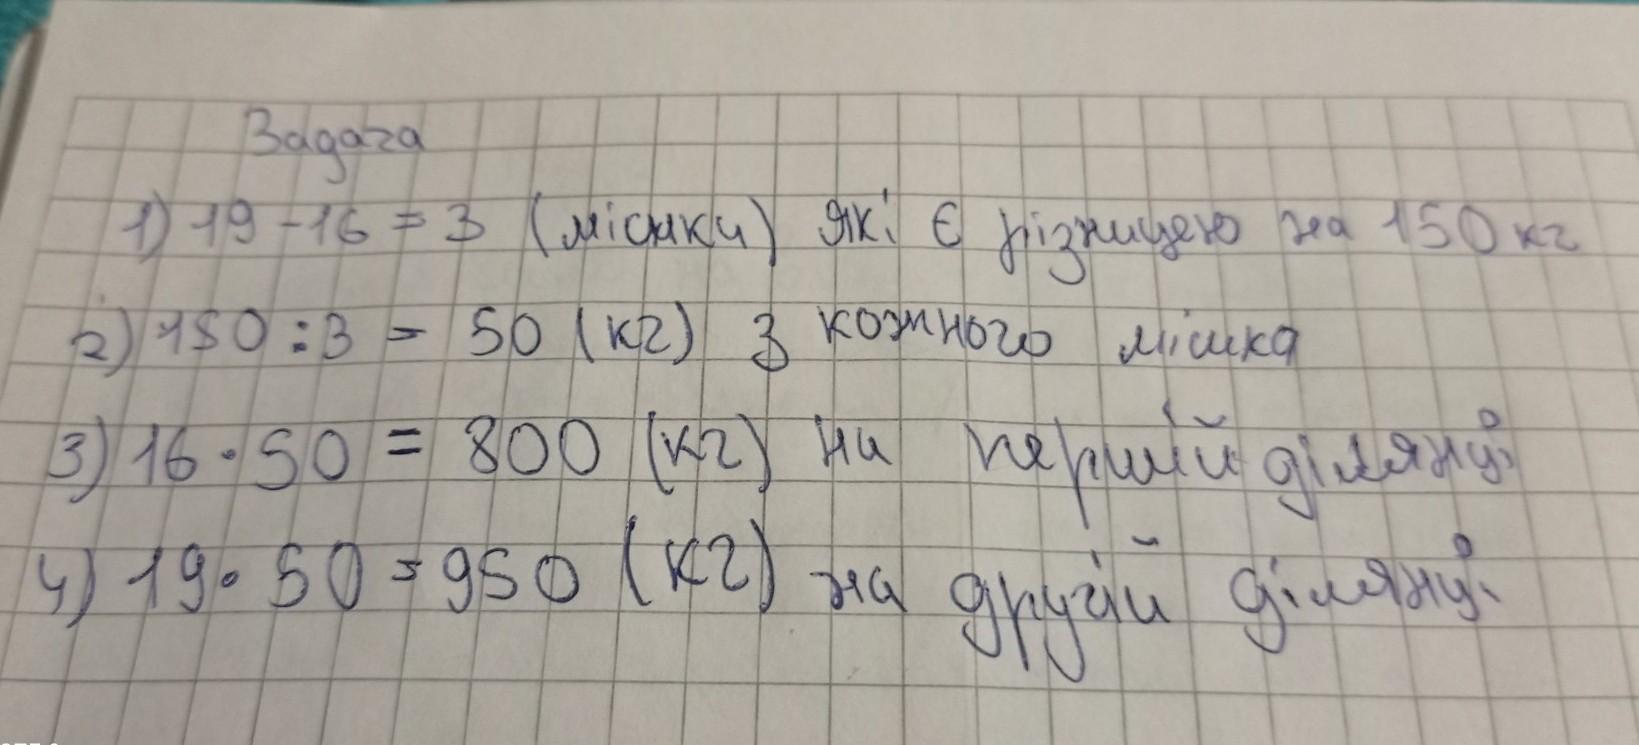 Задача
1) 19 - 16 = 3 (мішки) які є різницею на 150 кг
2) 150 : 3 = 50 (кг) з кожного мішка
3) 16 · 50 = 800 (кг) на першій ділянці
4) 19 · 50 = 950 (кг) на другій ділянці